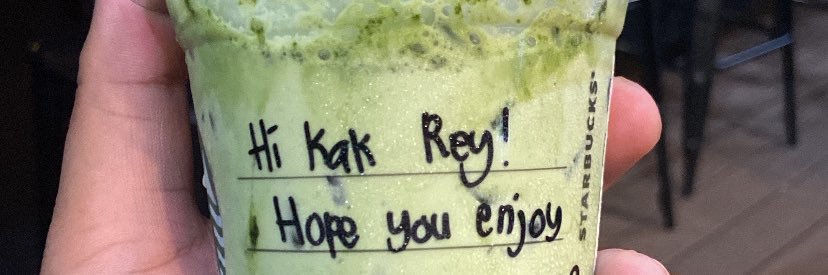 Hi Kak Rey!
Hope you enjoy
STARBUCKS